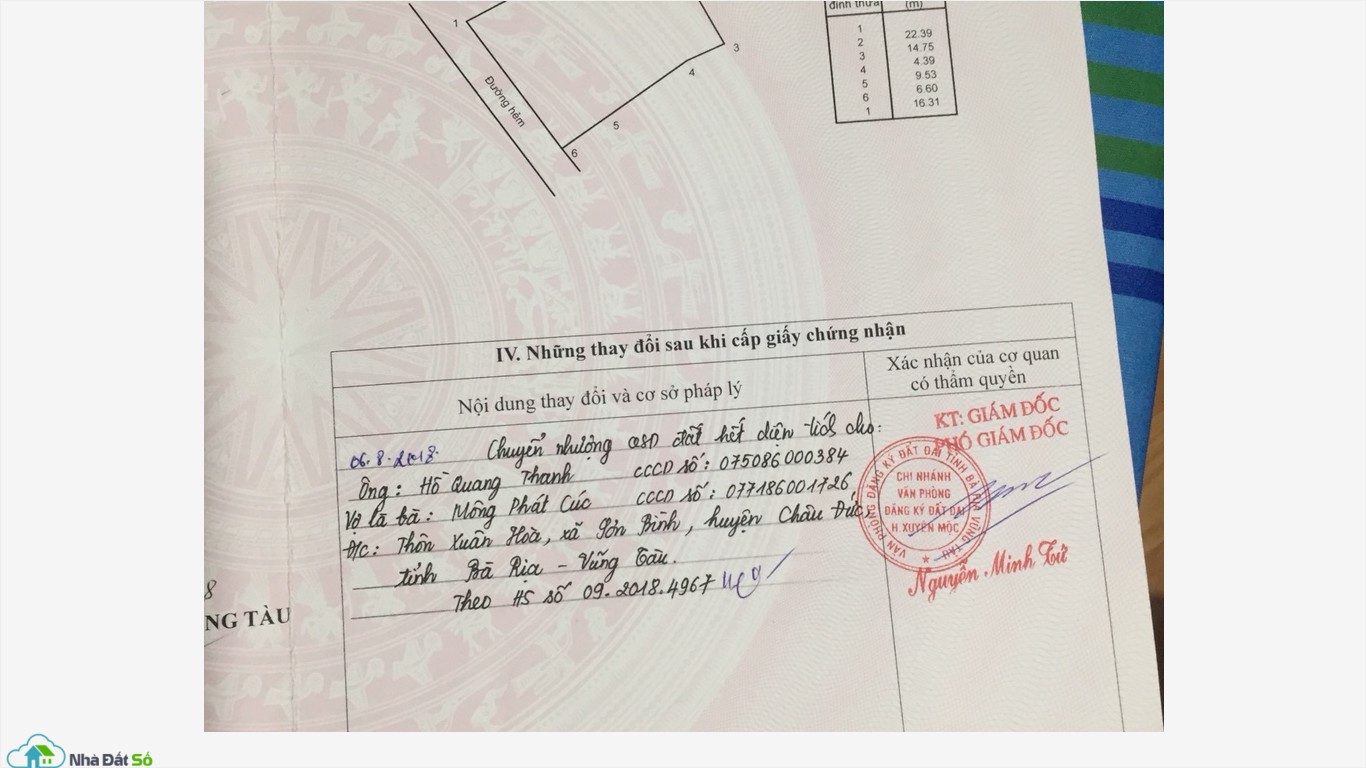 đỉnh thửa (m)
1
2
3
4
5
6
1
22.39
14.75
4.39
9.53
6.60
16.31
1
3
4
5
6
Đường hẻm
IV. Những thay đổi sau khi cấp giấy chứng nhận
Nội dung thay đổi và cơ sở pháp lý
Xác nhận của cơ quan
có thẩm quyền
06.8.2018. Chuyển nhượng QSD đất hết diện tích cho:
Ông: Hồ Quang Thanh CCCD số: 075086000384
Vợ là bà: Mông Phát Cúc CCCD số: 077186001726
Đ/c: Thôn Xuân Hoà, xã Sơn Bình, huyện Châu Đức,
tỉnh Bà Rịa - Vũng Tàu.
Theo HS số 09.2018.4967
KT: GIÁM ĐỐC
PHÓ GIÁM ĐỐC
VĂN PHÒNG ĐĂNG KÝ ĐẤT ĐAI TỈNH BÀ RỊA VŨNG TÀU
CHI NHÁNH
VĂN PHÒNG
ĐĂNG KÝ ĐẤT ĐAI
H.XUYÊN MỘC
Nguyễn Minh Tứ
8
NG TÀU
Nhà Đất Số